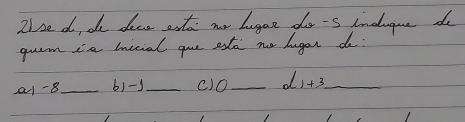 2) se d, de deca está no lugar do -5 indique de
quem é a inicial que está no lugar de:
a) -8___ b) -1___ c) 0___ d) +3___